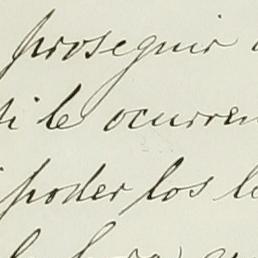 proseguir
si le ocurren
poder los le